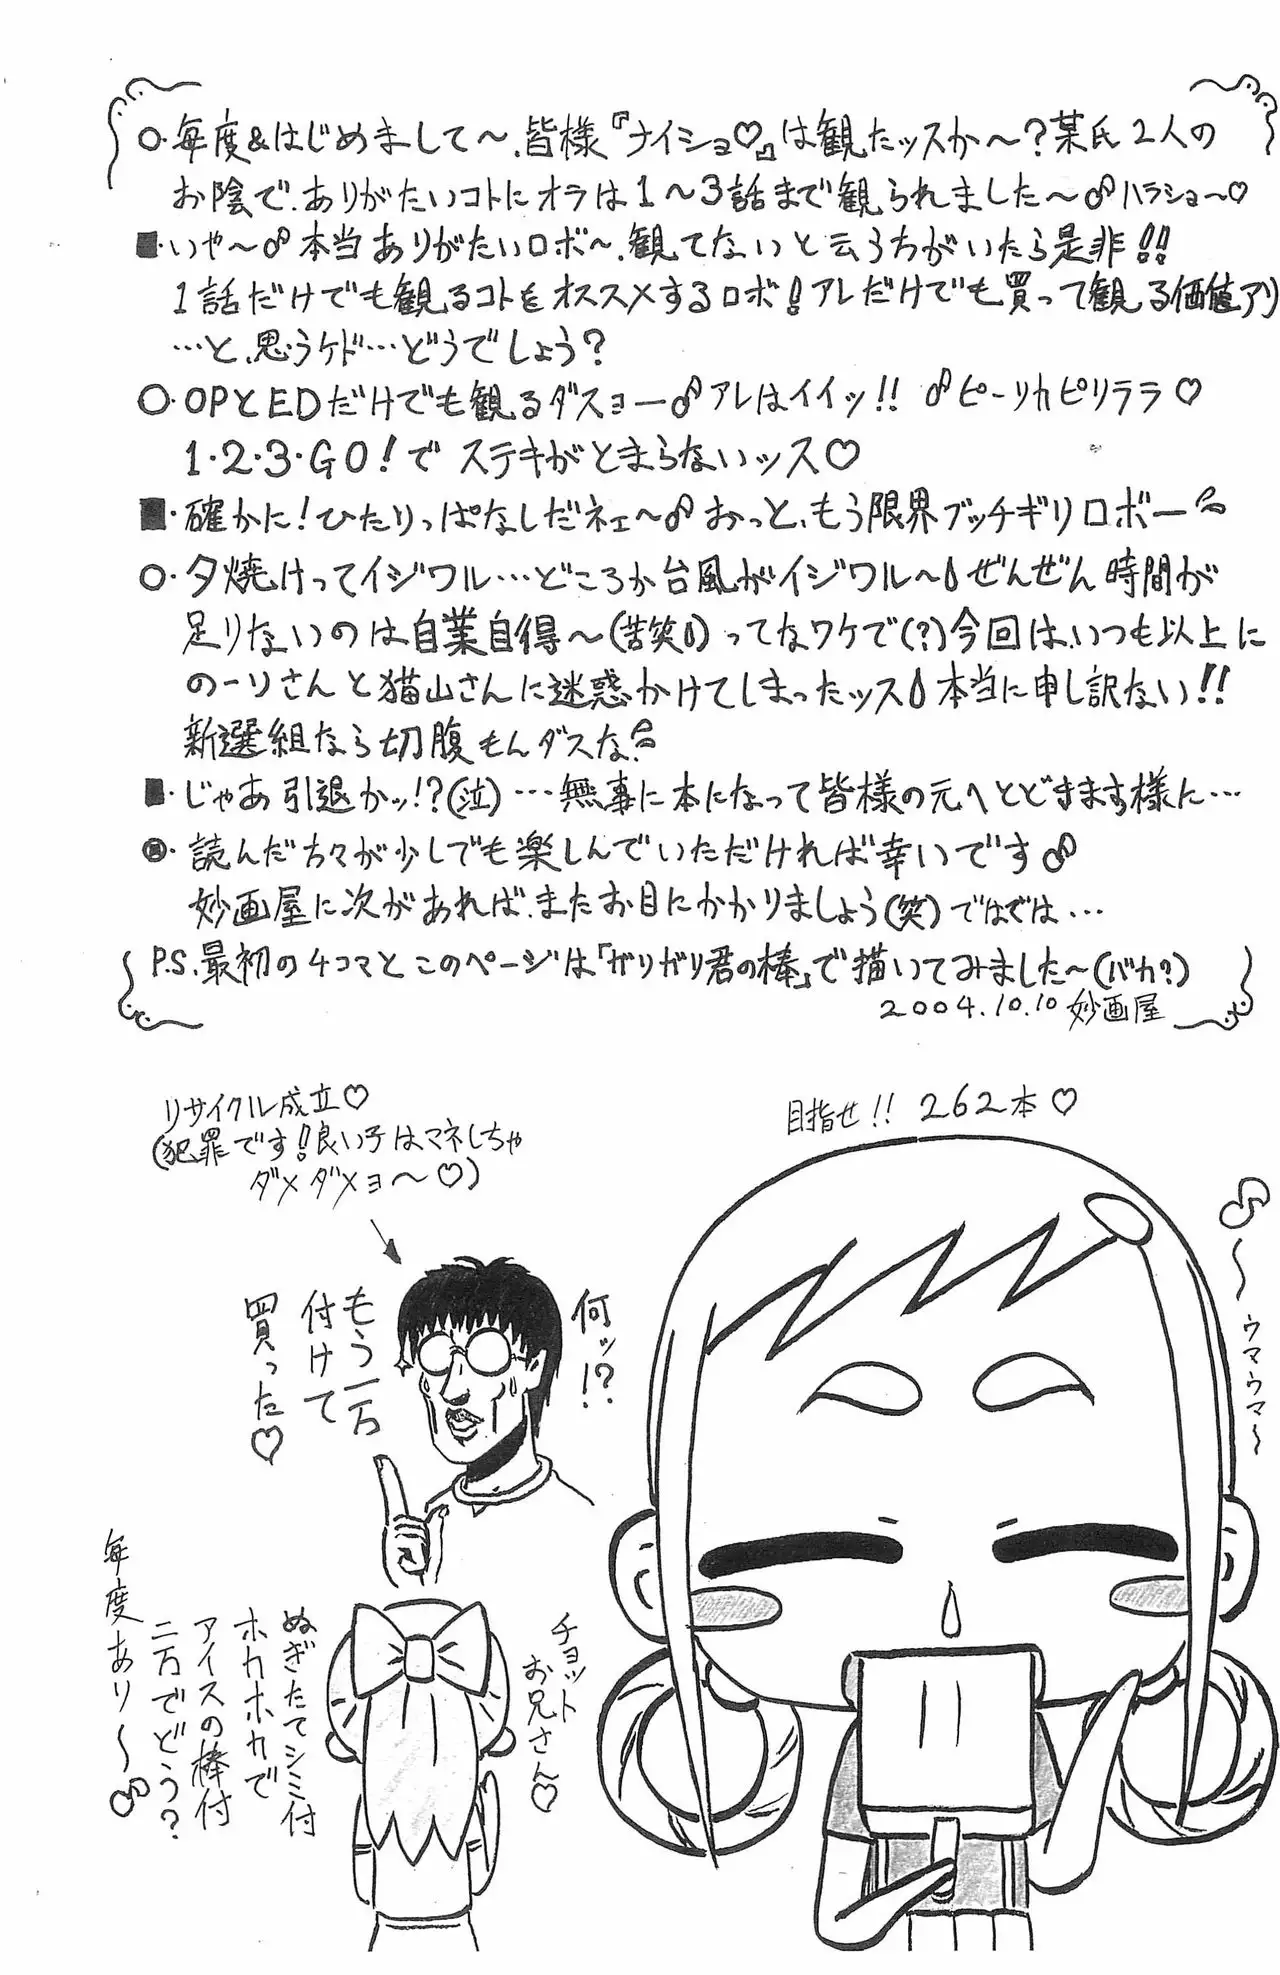 ○・毎度&はじめまして～、皆様『ナイショ♡』は観たッスか～?某氏2人の
お陰で、ありがたいコトにオラは1～3話まで観られました～♂ハラショ～♡
■・いや～♂本当ありがたいロボ～、観てないと云う方がいたら是非!!
1話だけでも観るコトをオススメするロボ!アレだけでも買って観る価値アリ
…と、思うケド…どうでしょう?
○・OPとEDだけでも観るダスョー♂アレはイイッ!! ♂ピーリカピリララ♡
1・2・3・GO!でステキがとまらないッス♡
■・確かに!ひたりっぱなしだネェ～♂おっと、もう限界ブッチギリロボー
○・夕焼けってイジワル…どころか台風がイジワル～ぜんぜん時間が
足りないのは自業自得～(苦笑)ってなワケで(?)今回は、いつも以上に
のーりさんと猫山さんに迷惑かけてしまったッス 本当に申し訳ない!!
新選組なら切腹もんダスな
■・じゃあ引退かッ!?(泣)…無事に本になって皆様の元へとどきます様に…
・読んだ方々が少しでも楽しんでいただければ幸いです♂
妙画屋に次があれば、またお目にかかりましょう(笑)ではでは…
P.S.最初の4コマとこのページは「ガリガリ君の棒」で描いてみました～(バカ?)
2004.10.10 妙画屋
目指せ!! 262本♡
ウマウマ～